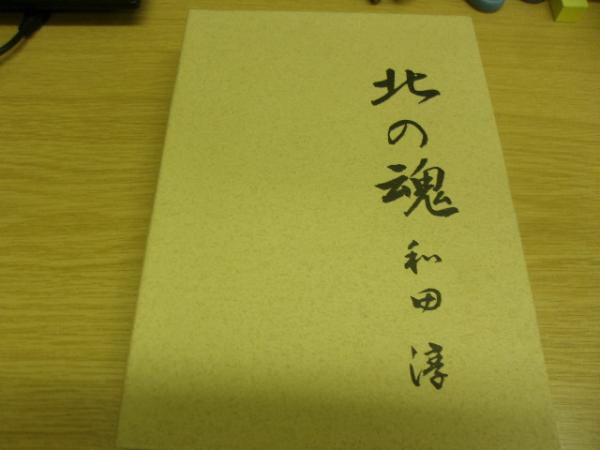 北の魂
和田 淳